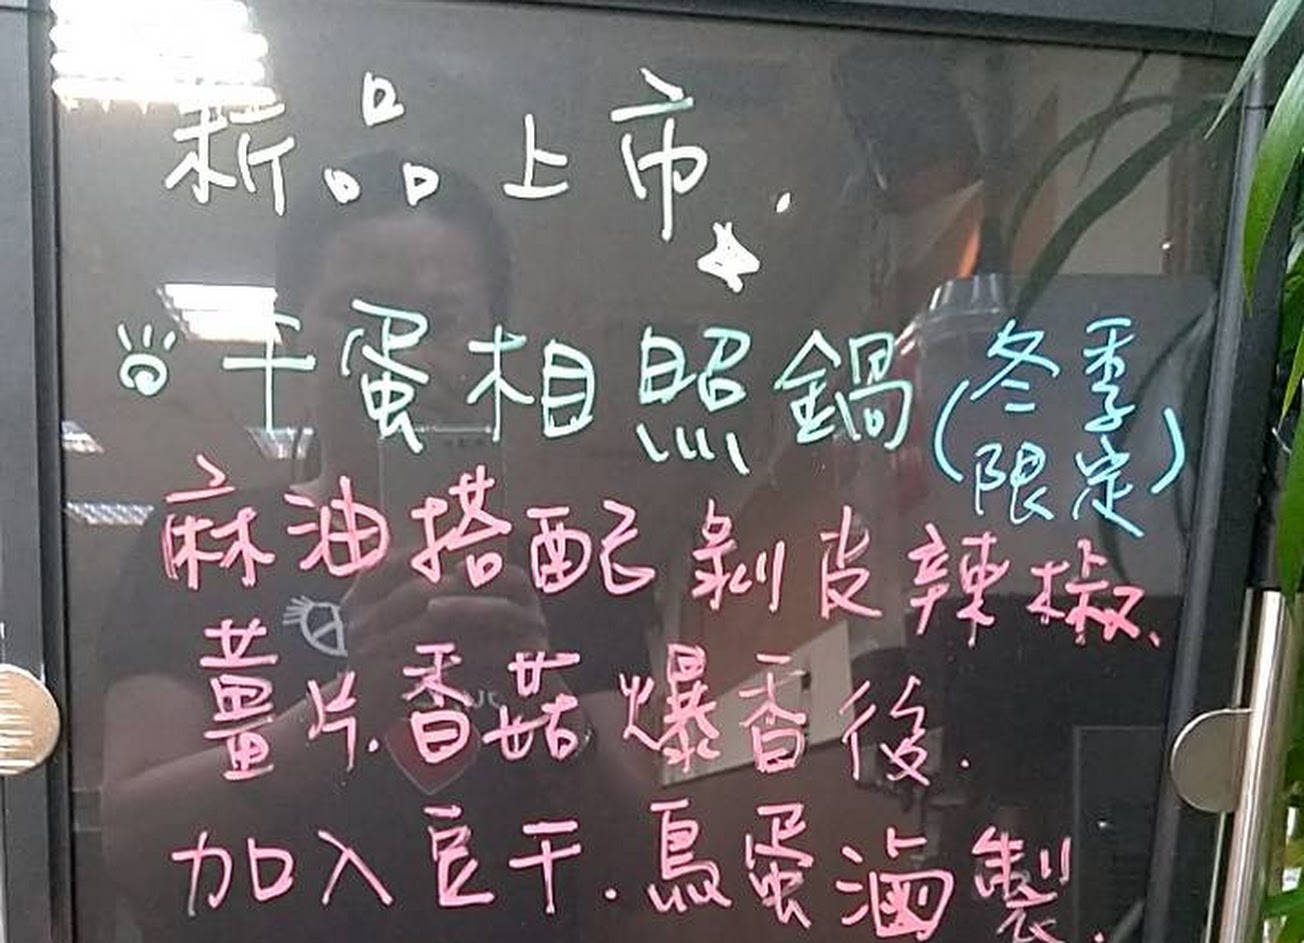 新品上市.
干蛋相照鍋(冬季限定)
麻油搭配剝皮辣椒、
薑片.香菇爆香後.
加入豆干.鳥蛋滷製.